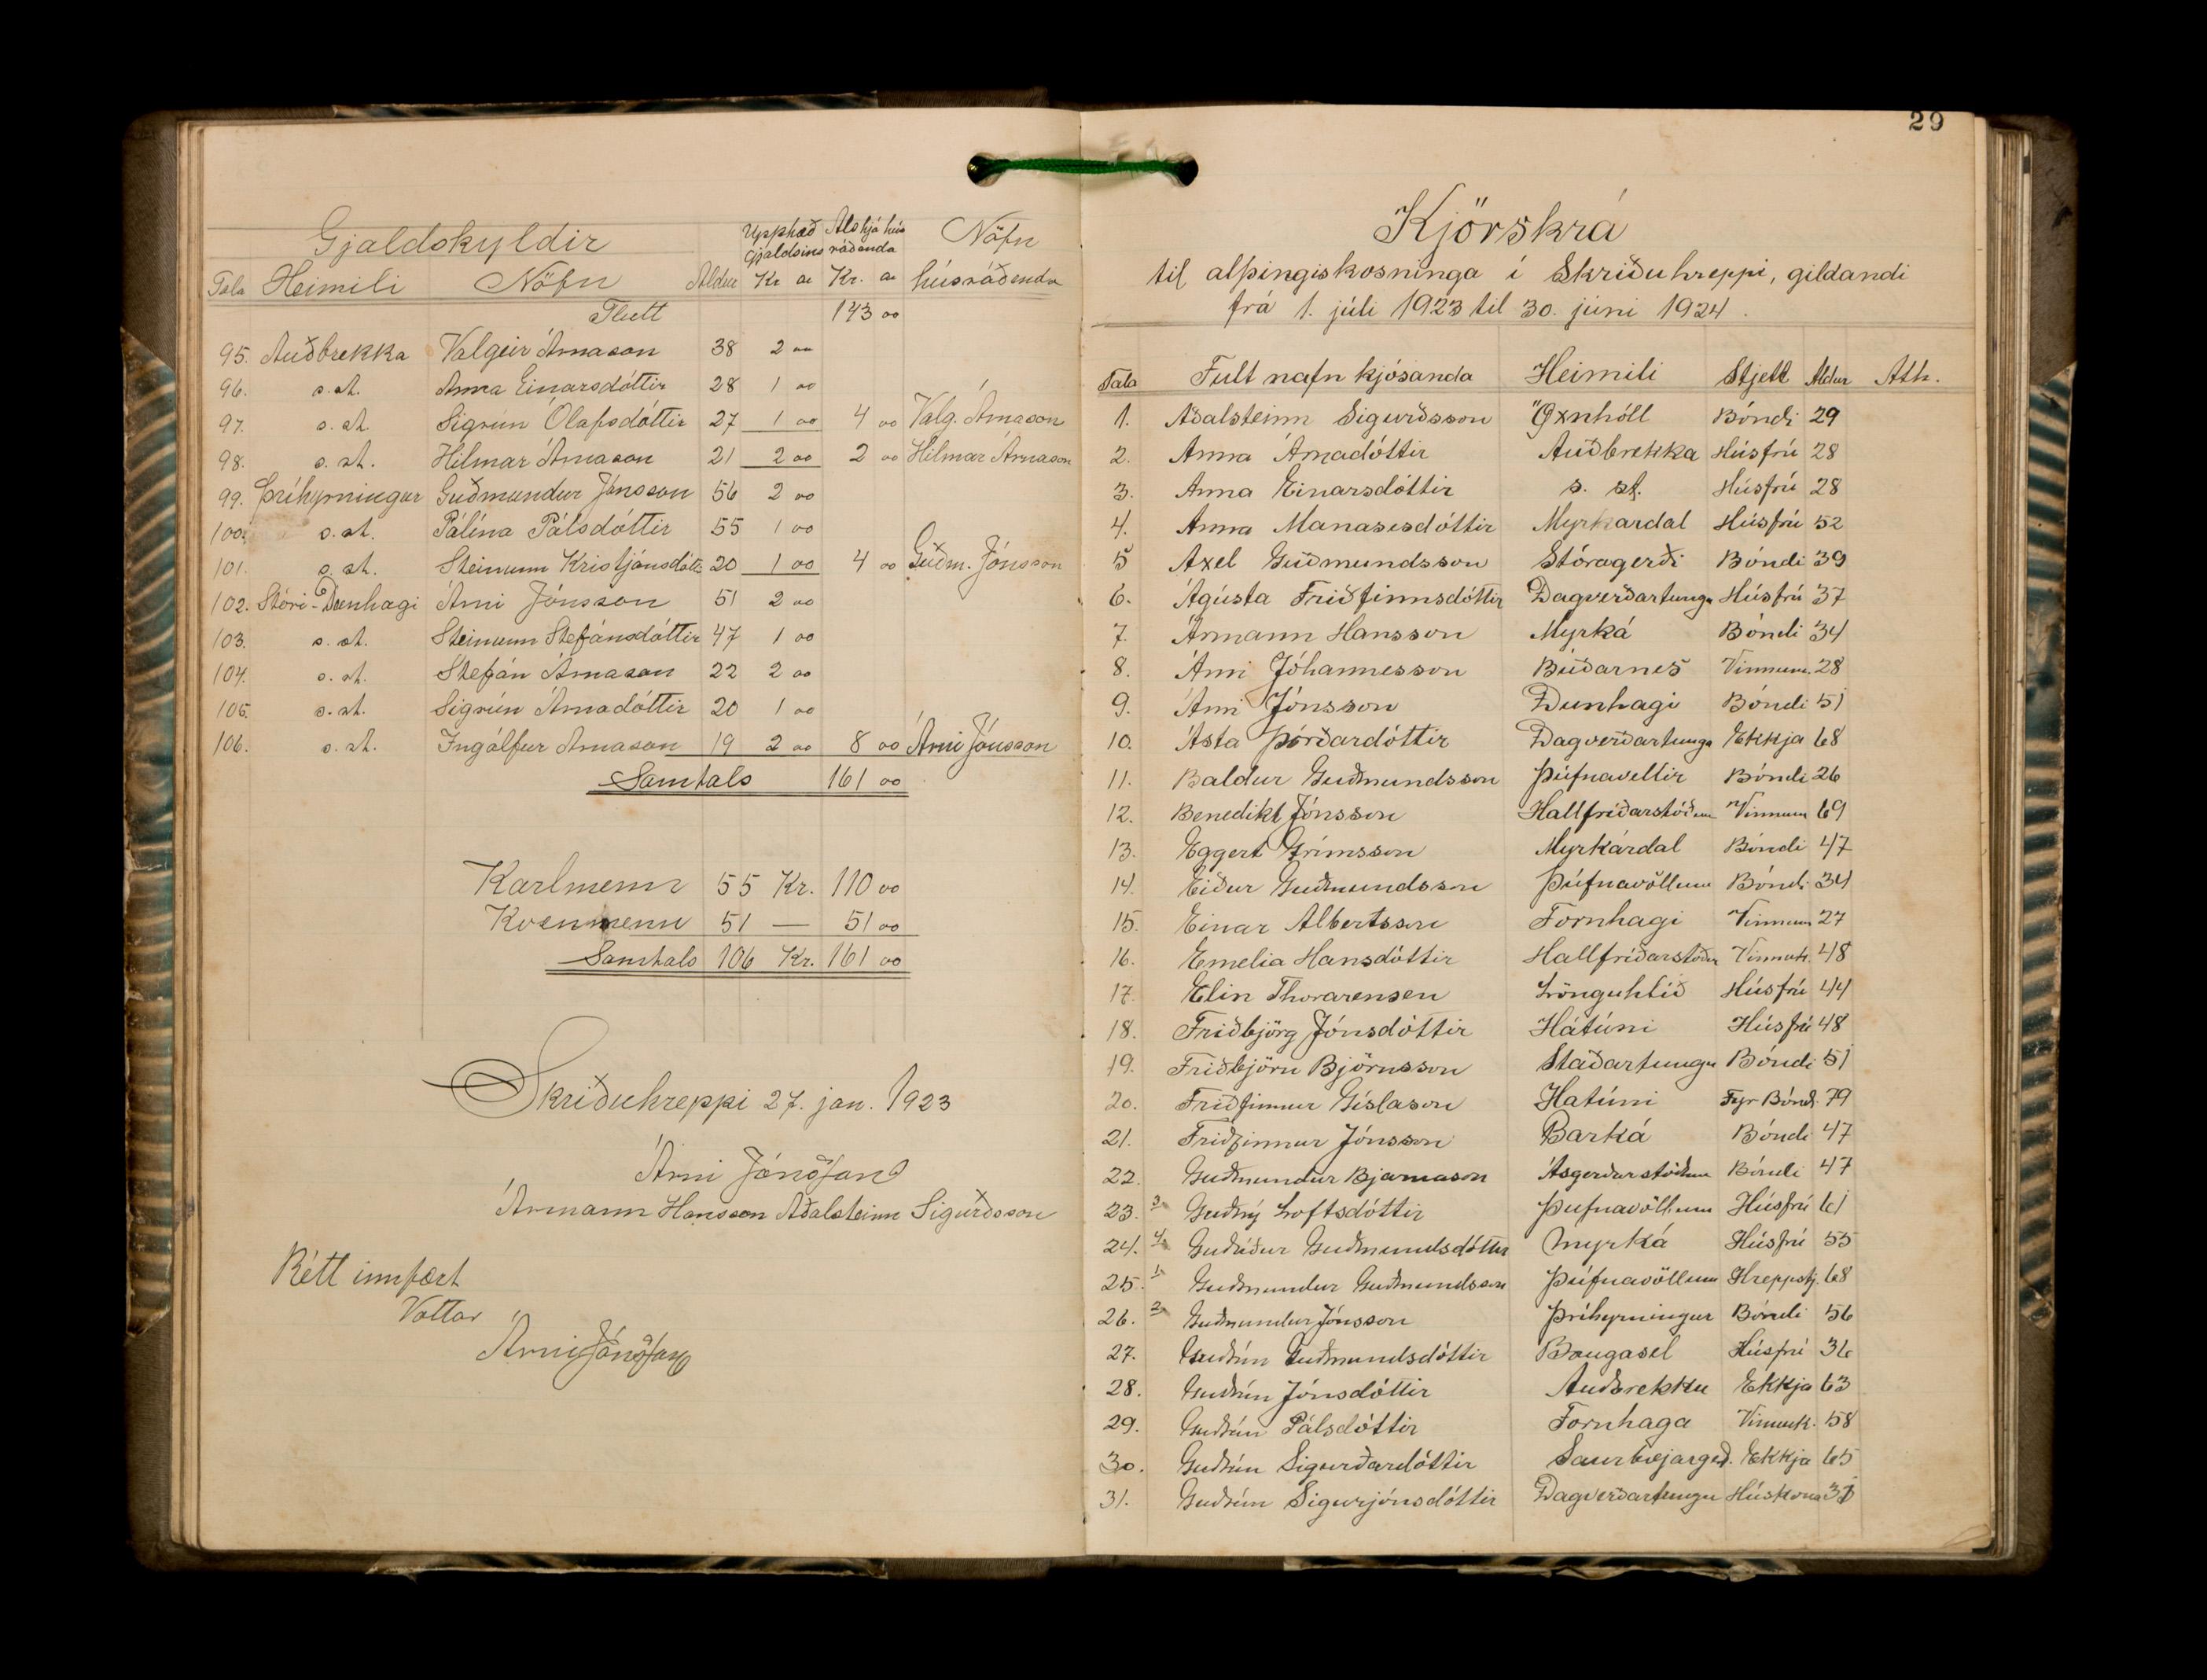 Gjaldskyldir Upphæð Als hjá hús Nöfn
gjaldsins ráðanda
Tala Heimili Nöfn Aldur Kr a Kr. a húsráðenda
Flutt 143 00
95. Auðbrekka Valgeir Árnason 38 2 00
96. s.st. Anna Einarsdóttir 28 1 00
97. s.st. Sigrún Ólafsdóttir 27 1 00 4 00 Valg. Árnason
98. s.st. Hilmar Árnason 21 2 00 2 00 Hilmar Árnason
99. Þríhyrningur Guðmundur Jónsson 56 2 00
100. s.st. Pálína Pálsdóttir 55 1 00
101. s.st. Steinunn Kristjánsdóttir 20 1 00 4 00 Guðm. Jónsson
102. Stóri-Dunhagi Árni Jónsson 51 2 00
103. s.st. Steinunn Stefánsdóttir 47 1 00
104. s.st. Stefán Árnason 22 2 00
105. s.st. Sigrún Árnadóttir 20 1 00
106. s.st. Ingólfur Árnason 19 2 00 8 00 Árni Jónsson
Samtals 161 00
Karlmenn 55 Kr. 110 00
Kvenmenn 51 — 51 00
Samtals 106 Kr. 161 00
Skriðuhreppi 27. jan. 1923
Árni Jónsson
Ármann Hansson Aðalsteinn Sigurðsson
Rétt innfært
Vottar
Árni Jónsson
29
Kjörskrá
til alþingiskosninga í Skriðuhreppi, gildandi
frá 1. júlí 1923 til 30. júni 1924.
Tala Fult nafn kjósanda Heimili Stjett Aldur Ath.
1. Aðalsteinn Sigurðsson Öxnhóll Bóndi 29
2. Anna Árnadóttir Auðbrekka Húsfrú 28
3. Anna Einarsdóttir s. st. Húsfrú 28
4. Anna Manasesdóttir Myrkardal Húsfrú 52
5 Axel Guðmundsson Stóragerði Bóndi 39
6. Ágústa Friðfinnsdóttir Dagverðartungu Húsfrú 37
7. Ármann Hansson Myrká Bóndi 34
8. Árni Jóhannesson Búðarnes Vinnum. 28
9. Árni Jónsson Dunhagi Bóndi 51
10. Ásta Þórðardóttir Dagverðartungu Ekkja 68
11. Baldur Guðmundsson Þúfnavellir Bóndi 26
12. Benedikt Jónsson Hallfríðarstöðum Vinnum 69
13. Eggert Grímsson Myrkárdal Bóndi 47
14. Eiður Guðmundsson Þúfnavöllum Bóndi 34
15. Einar Albertsson Fornhagi Vinnum 27
16. Emelia Hansdóttir Hallfríðarstöðum Vinnuk. 48
17. Elin Thorarensen Lönguhlíð Húsfrú 44
18. Friðbjörg Jónsdóttir Hátúni Húsfrú 48
19. Friðbjörn Björnsson Staðartungu Bóndi 51
20. Friðfinnur Gíslason Hatúni Fyr Bóndi 79
21. Friðfinnur Jónsson Barká Bóndi 47
22. Guðmundur Bjarnason Ásgerðarstöðum Bóndi 47
23. 3 Guðný Loftsdóttir Þufnavöllum Húsfrú 61
24. 4 Guðríður Guðmundsdóttir Myrká Húsfrú 55
25. 1 Guðmundur Guðmundsson Þúfnavöllum Hreppstj. 68
26. 2 Guðmundur Jónsson Þríhyrningur Bóndi 56
27. Guðrún Guðmundsdóttir Baugasel Húsfrú 36
28. Guðrún Jónsdóttir Auðbrekku Ekkja 63
29. Guðrún Pálsdóttir Fornhaga Vinnuk. 58
30. Guðrún Sigurðardóttir Saurbæjargerð. Ekkja 65
31. Guðrún Sigurjónsdóttir Dagverðartungu Húskona